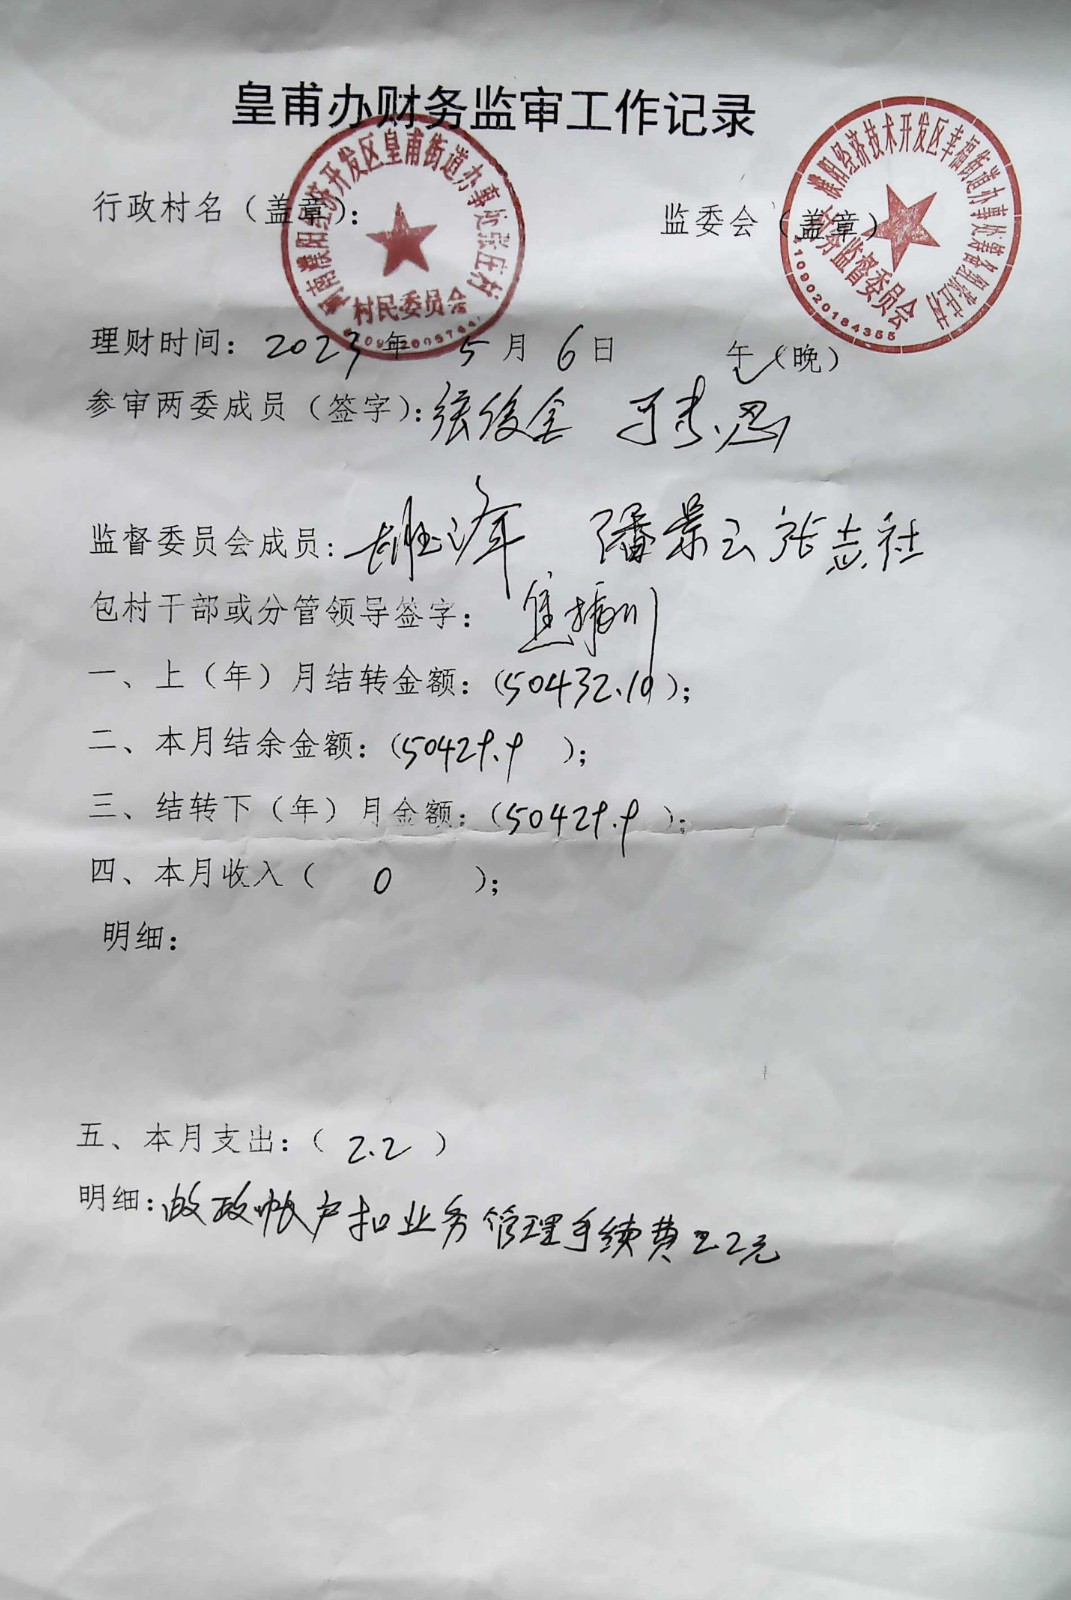 皇甫办财务监审工作记录
行政村名（盖章）： 监委会（盖章）
河南濮阳经济开发区皇甫街道办事处张庄村
村民委员会
濮阳经济技术开发区幸福街道办事处
村务监督委员会
4109020184355
理财时间：2023年 5月6日 午（晚）
参审两委成员（签字）：张俊金
监督委员会成员： 潘景云 张志社
包村干部或分管领导签字：
一、上（年）月结转金额：（50432.10）；
二、本月结余金额：（50429.9 ）；
三、结转下（年）月金额：（50429.9 ）；
四、本月收入（ 0 ）；
明细：
五、本月支出：（ 2.2 ）
明细：邮政帐户扣业务管理手续费2.2元